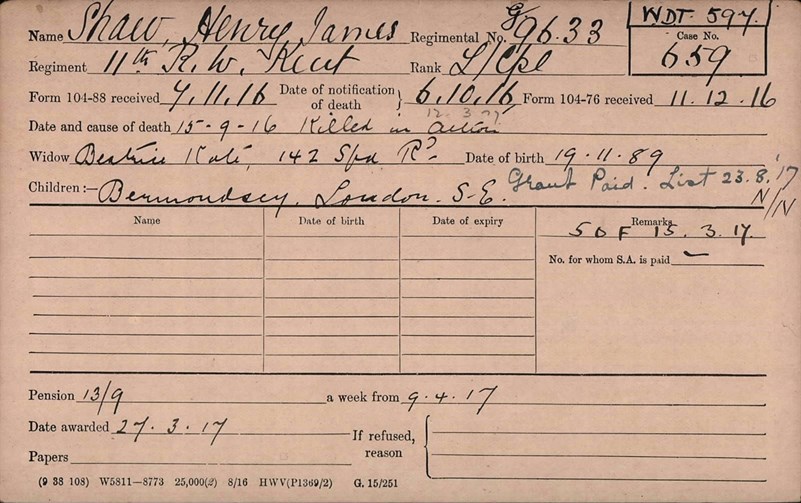 Name Shaw, Henry James Regimental No. G/9633 WDT. 597.
Case No.
659
Regiment 11th R. W. Kent Rank L/Cpl
Form 104-88 received 7.11.16 Date of notification of death } 6.10.16 Form 104-76 received 11.12.16
12.3.17
Date and cause of death 15-9-16 Killed in action
Widow Beatrice Kate, 142 Spa Rd Date of birth 19.11.89
Children:— Bermondsey, London. S.E. Grant Paid. List 23.8.17
N/N
Name Date of birth Date of expiry Remarks
SDF 15.3.17.
No. for whom S.A. is paid —
Pension 13/9 a week from 9.4.17
Date awarded 27.3.17
If refused, reason
Papers
(9 38 108) W5811—8773 25,000(2) 8/16 HWV(P1369/2) G. 15/251